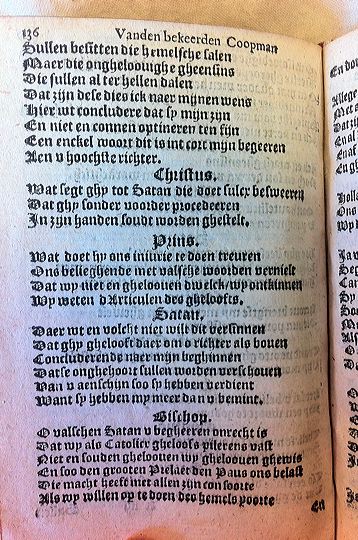 136 Vanden bekeerden Coopman
Sullen besitten die hemelsche salen
Maer die onghelooughe gheensins
Die sullen al ter hellen dalen
Dat zijn dese dies ick naer mijnen wens
Hier wt concludere dat sy mijn zijn
En niet en connen optineren ten fijn
Een enckel woort dit is int cort mijn begeeren
Aen v hoochste richter.
Christus.
Wat segt ghy tot Satan die doet sulcx besweeren
Dat ghy sonder voorder procedeeren
In zijn handen soudt worden ghestelt.
Prins.
Wat doet hy ons iniurie te doen treuren
Ons belieghende met valsche woorden vernielt
Dat wy niet en ghelooven dwelck/wy ontkinnen
Wy weten d'Articulen des gheloofs.
Satan.
Daer wt en volcht niet wilt dit versinnen
Dat ghy ghelooft daer om o richter als bouen
Concluderende naer mijn beghinnen
Datse onghehoort sullen worden verschouen
Van v aenschijn soo sy hebben verdient
Want sy hebben my meer dan v bemint.
Bischop.
O valschen Satan v begheeren onrecht is
Dat wy als Catolier gheloofs pilerens vast
Niet en souden ghelooven wy ghelooven ghewis
En soo den grooten Prelaet den Paus ons belast
Die macht heeft met allen zijn consoorte
Als wy willen op te doen des hemels poorte
En